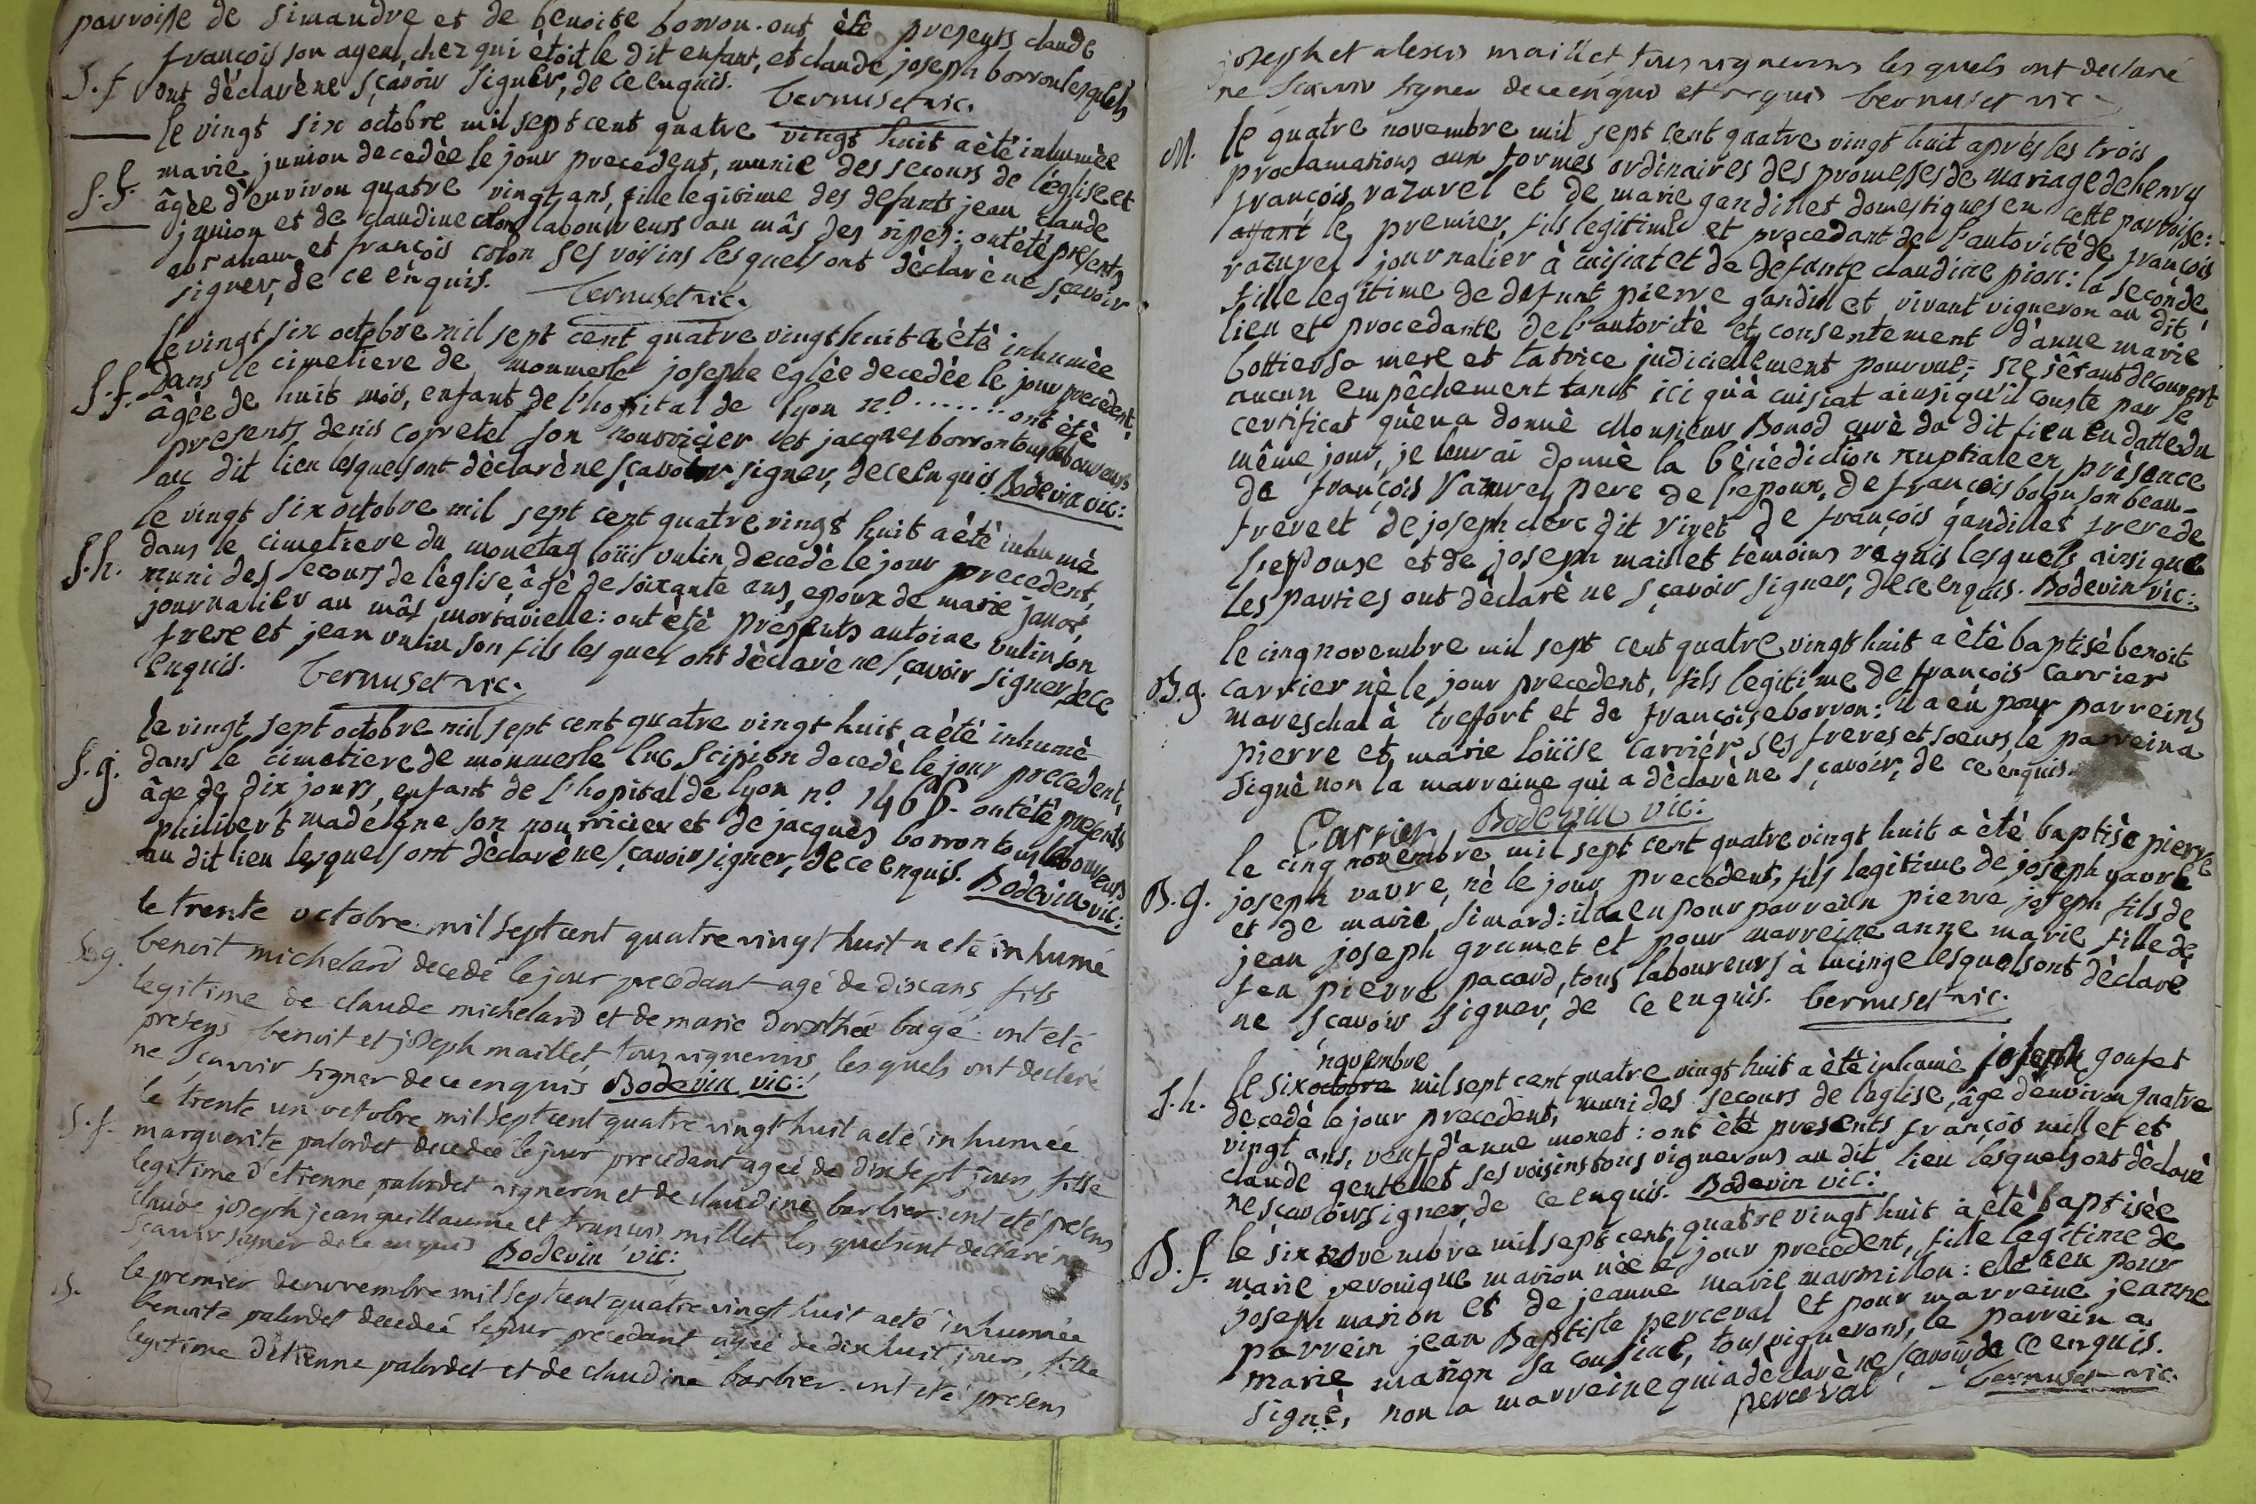 parroisse de simandre et de benoite borron. ont ètè presents claude
françois son ayeul, chez qui ètoit le dit enfant, et claude joseph borron lesquels
S. f ont dèclarè ne sçavoir signer, de ce enquis. bernuset vic.
le vingt six octobre mil sept cent quatre vingt huit a ètè inhumèe
marie junion decedèe le jour precedent, munie des secours de l'èglise et
S. f. âgèe d'environ quatre vingt ans, fille legitime des defunts jean claude
junion et de claudine colon laboureurs au mâs des rippes: ont ètè presents
abraham et françois colon ses voisins lesquels ont dèclarè ne sçavoir
signer, de ce enquis. bernuset vic.
le vingt six octobre mil sept cent quatre vingt huit a ètè inhumèe
dans le cimetiere de monmerle josephe eglèe decedèe le jour precedent,
S. f. âgèe de huit mois, enfant de l'hopital de lyon n.º ....... ont ètè
presents denis copretel son nourricier et jacques borron tous laboureurs
au dit lieu lesquels ont dèclarè ne sçavoir signer, de ce enquis. Bodevin vic:
le vingt six octobre mil sept cent quatre vingt huit a ètè inhumè
dans le cimetiere du monetay loüis vulin decedè le jour precedent,
S. h. muni des secours de l'èglise âgè de soixante ans, epoux de marie janot,
journalier au mâs mortavielle: ont ètè presents antoine vulin son
frere et jean vulin son fils lesquels ont dèclarè ne sçavoir signer, de ce
enquis. bernuset vic.
le vingt sept octobre mil sept cent quatre vingt huit a ètè inhumè
S. g. dans le cimetiere de monmerle luc scipion decedè le jour precedent,
âge de dix jours, enfant de l'hopital de lyon n.º 1466. ont ètè presents
philibert madeigne son nourricier et de jacques borron tous laboureurs
au dit lieu lesquels ont dèclarè ne sçavoir signer, de ce enquis. Bodevin vic:
le trente octobre mil sept cent quatre vingt huit a eté inhumé
S. g. benoit michelard decedé le jour precedant agé de dix ans fils
legitime de claude michelard et de marie dorothée bagé. ont eté
presens benoit et joseph maillet, tous vignerons, les quels ont declaré
ne sçavoir signer de ce enquis Bodevin vic:
le trente un octobre mil sept cent quatre vingt huit a eté inhumée
S. f. marguerite palordet decedeé le jour precedant ageé de dix sept jours, fille
legitime d'etienne palordet vigneron et de claudine barbier. ont eté presens
claude joseph jean guillaume et françois millet les quels ont declaré ne
sçavoir signer de ce enquis Bodevin vic:
S. le premier de novembre mil sept cent quatre vingt huit a eté inhumée
benoite palordet decedeé le jour precedant ageé de dix huit jours, fille
legitime d'etienne palordet et de claudine barbier. ont eté presens
joseph et alexis maillet tous vignerons les quels ont declaré
ne scavoir signer de ce enquis et requis bernuset vic
M. le quatre novembre mil sept cent quatre vingt huit après les trois
proclamations aux formes ordinaires des promesses de mariage de henry
françois vazurel et de marie gandillet domestiques en cette parroisse:
le premier, fils legitime et procedant de l'autorité de françois
vazurel journalier à cuisiat et de defunte claudine pion: la seconde,
fille legitime de defunt pierre gandillet vivant vigneron au dit
lieu et procedante de l'autoritè et consentement d'anne marie
bottier sa mere et tutrice judiciellement pourvue; ne s'êtant decouvert
aucun empêchement tant ici qu'à cuisiat ainsi qu'il conste par le
certificat qu'en a donnè Monsieur Bonod curè du dit lieu en datte du
même jour, je leur ai donnè la bènèdiction nuptiale en prèsence
de françois vazurel pere de l'epoux, de françois bolon son beau-
frere et de joseph clerc dit vivet de françois gandillet frere de
l'epouse et de joseph maillet tèmoins requis lesquels ainsi que
les parties ont dèclarè ne sçavoir signer, de ce enquis. Bodevin vic:
le cinq novembre mil sept cent quatre vingt huit a ètè baptisè benoit
B. g. carrier nè le jour precedent, fils legitime de françois carrier
mareschal à treffort et de françoise borron: il a eu pour parreins
pierre et marie loüise carrier ses freres et soeurs, le parrein a
signè non la marreine qui a dèclarè ne sçavoir, de ce enquis.
Carrier Bodevin vic:
le cinq novembre mil sept cent quatre vingt huit a ètè baptisè pierre
B. g. joseph vavre, nè le jour precedent, fils legitime de joseph vavre
et de marie simard: il a eu pour parrein pierre joseph fils de
jean joseph grumet et pour marreine anne marie fille de
feu pierre pacard, tous laboureurs à lucinge lesquels ont dèclarè
ne sçavoir signer, de ce enquis. bernuset vic.
novembre
S. h. le six octobre mil sept cent quatre vingt huit a ètè inhumè joseph goufet
decedè le jour precedent, muni des secours de l'eglise, âge d'environ quatre
vingt ans, veuf d'anne monet: ont ètè presents françois millet et
claude gentellet ses voisins tous vignerons au dit lieu lesquels ont dèclarè
ne sçavoir signer, de ce enquis. Bodevin vic:
le six novembre mil sept cent quatre vingt huit a ètè baptisèe
B. f. marie veronique marion nèe le jour precedent, fille legitime de
joseph marion et de jeanne marie marmillon: elle a eu pour
parrein jean Baptiste perceval et pour marreine jeanne
marie marion sa cousine, tous vignerons, le parrein a
signè, non la marreine qui a dèclarè ne sçavoir, de ce enquis.
perceval bernuset vic.